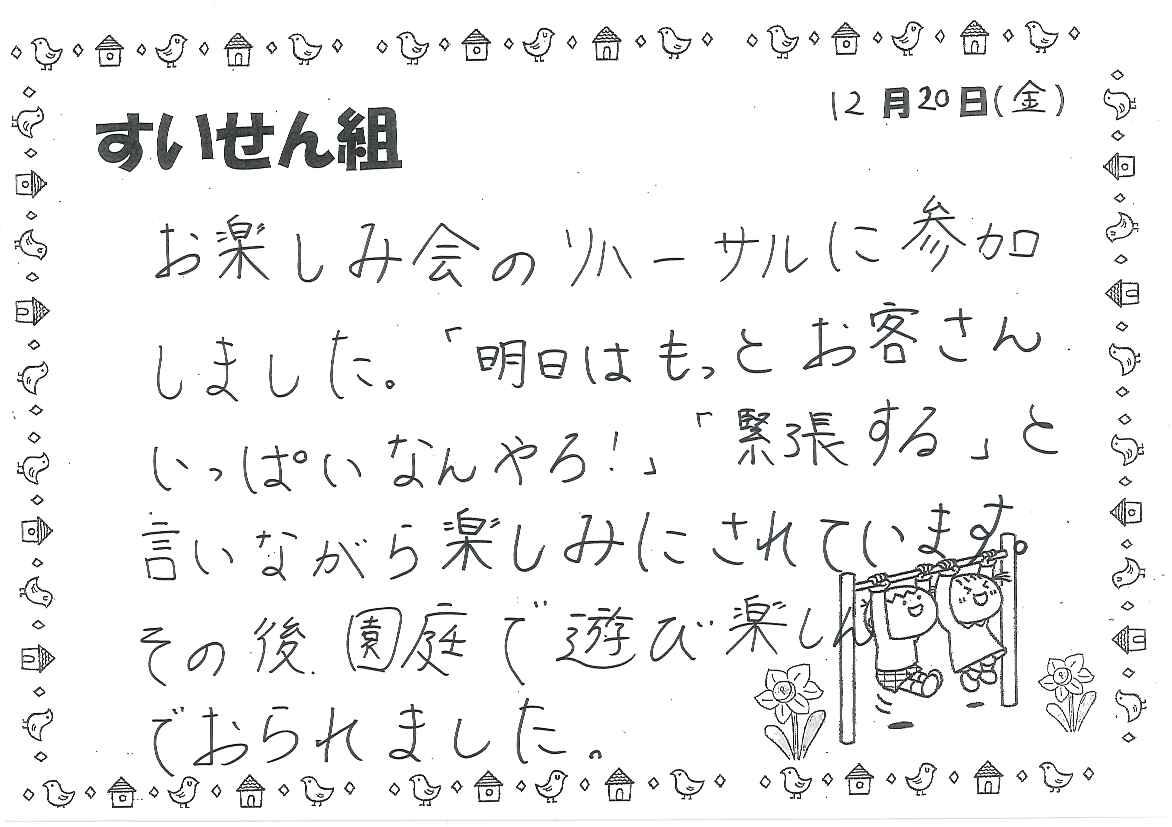 12月20日(金)
すいせん組
お楽しみ会のリハーサルに参加
しました。「明日はもっとお客さん
いっぱいなんやろ!」「緊張する」と
言いながら楽しみにされています。
その後、園庭で遊び楽しん
でおられました。